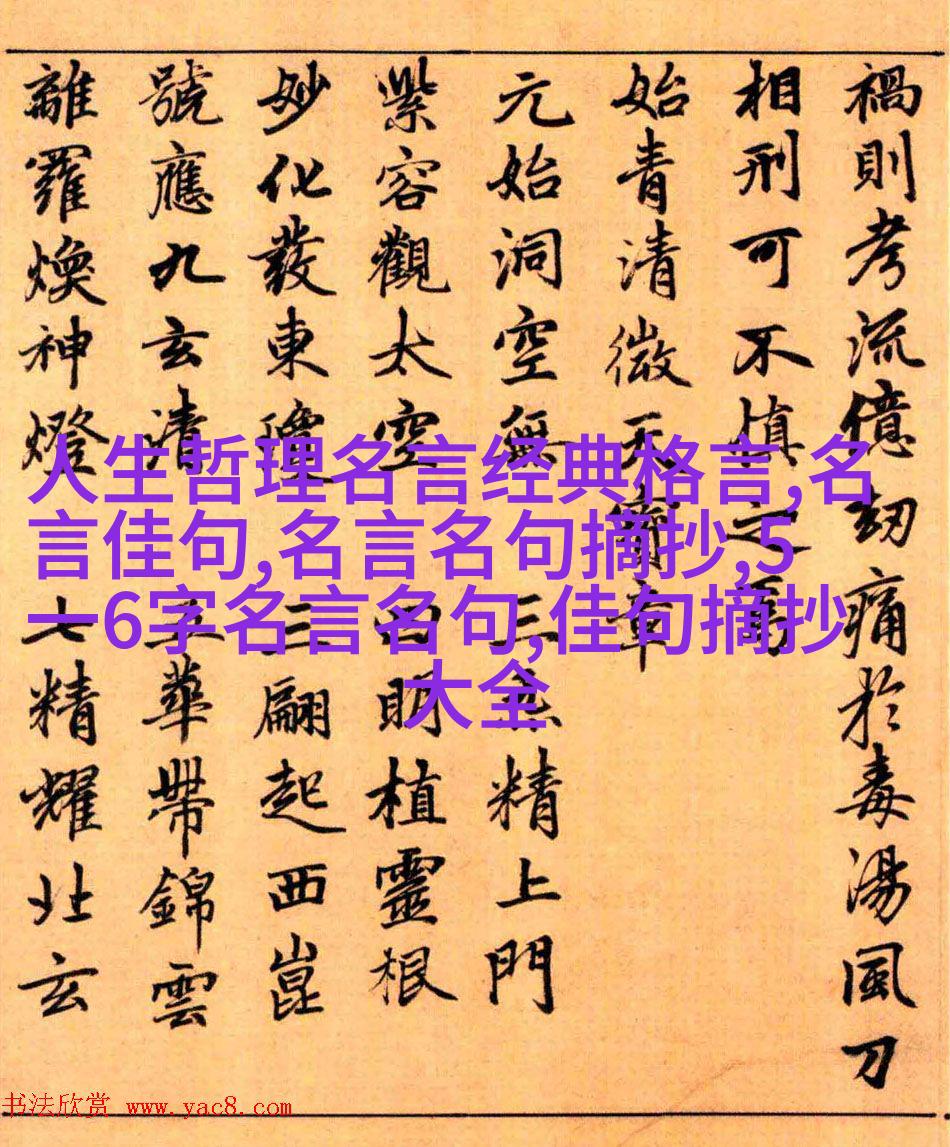 禍則考流億劫痛於毒湯風刀
相刑可不慎之
始青清微天章
元始洞空無三精上門
紫容觀太空明植靈根
妙化發東三翩起西崑
號應九玄清華帶錦雲
離羅煥神燈七精耀北玄
人生哲理名言经典格言,名
言佳句,名言名句摘抄,5
一6字名言名句,佳句摘抄
大全
书法欣赏 www.yac8.com